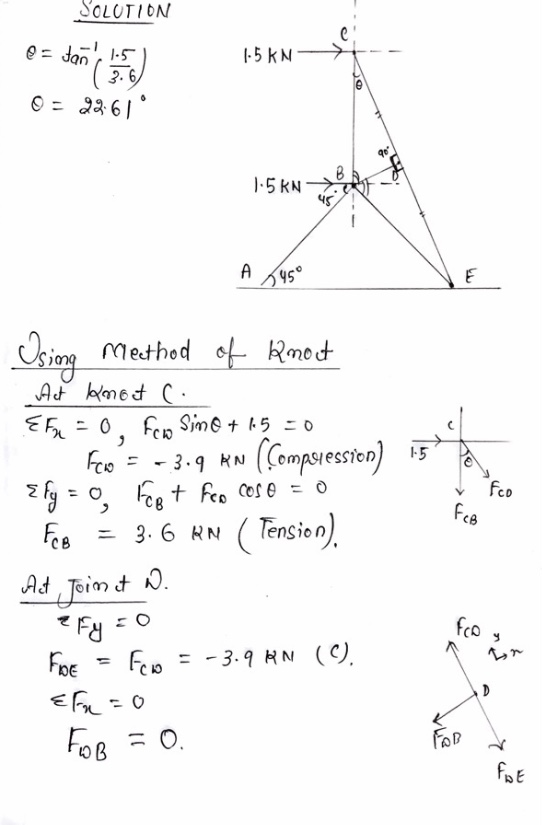 SOLUTION
θ = tan⁻¹(1.5/3.6)
θ = 22.61°
C
1.5 KN
θ
90°
D
B
1.5 KN
45°
A
45°
E
Using Method of Knot
At Knot C.
ΣFx = 0, FCD Sinθ + 1.5 = 0
FCD = -3.9 KN (Compression)
ΣFy = 0, FCB + FCD cosθ = 0
FCB = 3.6 KN (Tension).
C
1.5
θ
FCD
FCB
At Joint D.
ΣFy = 0
FDE = FCD = -3.9 KN (C).
ΣFx = 0
FDB = 0.
FCD
y
x
D
FDB
FDE